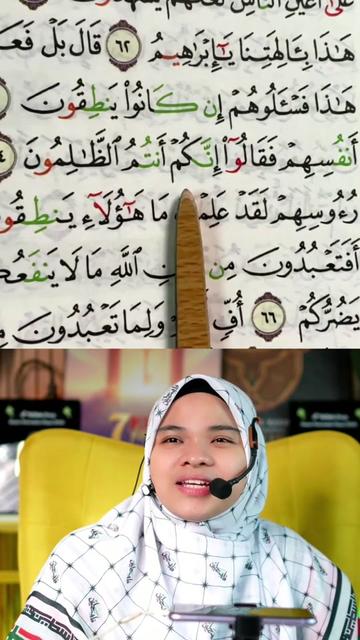 عَلَىٰٓ أَعْيُنِ ٱلنَّاسِ لَعَلَّهُمْ يَشْهَدُونَ
هَٰذَا بِـَٔالِهَتِنَا يَٰٓإِبْرَٰهِيمُ ٦٢ قَالَ بَلْ فَعَ
هَٰذَا فَسْـَٔلُوهُمْ إِن كَانُوا۟ يَنطِقُونَ
أَنفُسِهِمْ فَقَالُوٓا۟ إِنَّكُمْ أَنتُمُ ٱلظَّٰلِمُونَ
رُءُوسِهِمْ لَقَدْ عَلِمْ مَا هَٰٓؤُلَآءِ يَنطِقُو
أَفَتَعْبُدُونَ مِن ٱللَّهِ مَا لَا يَنفَعُكُ
يَضُرُّكُمْ ٦٦ أُفٍّ وَلِمَا تَعْبُدُونَ مِ
7